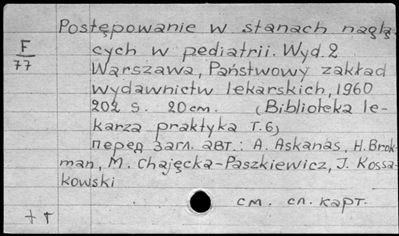 Postępowanie w stanach nagłą-
F
77
cych w pediatrii. Wyd. 2
Warszawa, Państwowy zakład
wydawnictw lekarskich, 1960
202 s. 20 cm. (Biblioteka le-
karza praktyka т. 6)
перед загл. авт.: A. Askanas, H. Brok-
man, M. Chajęcka-Paszkiewicz, J. Kossa-
kowski
см. сл. карт.